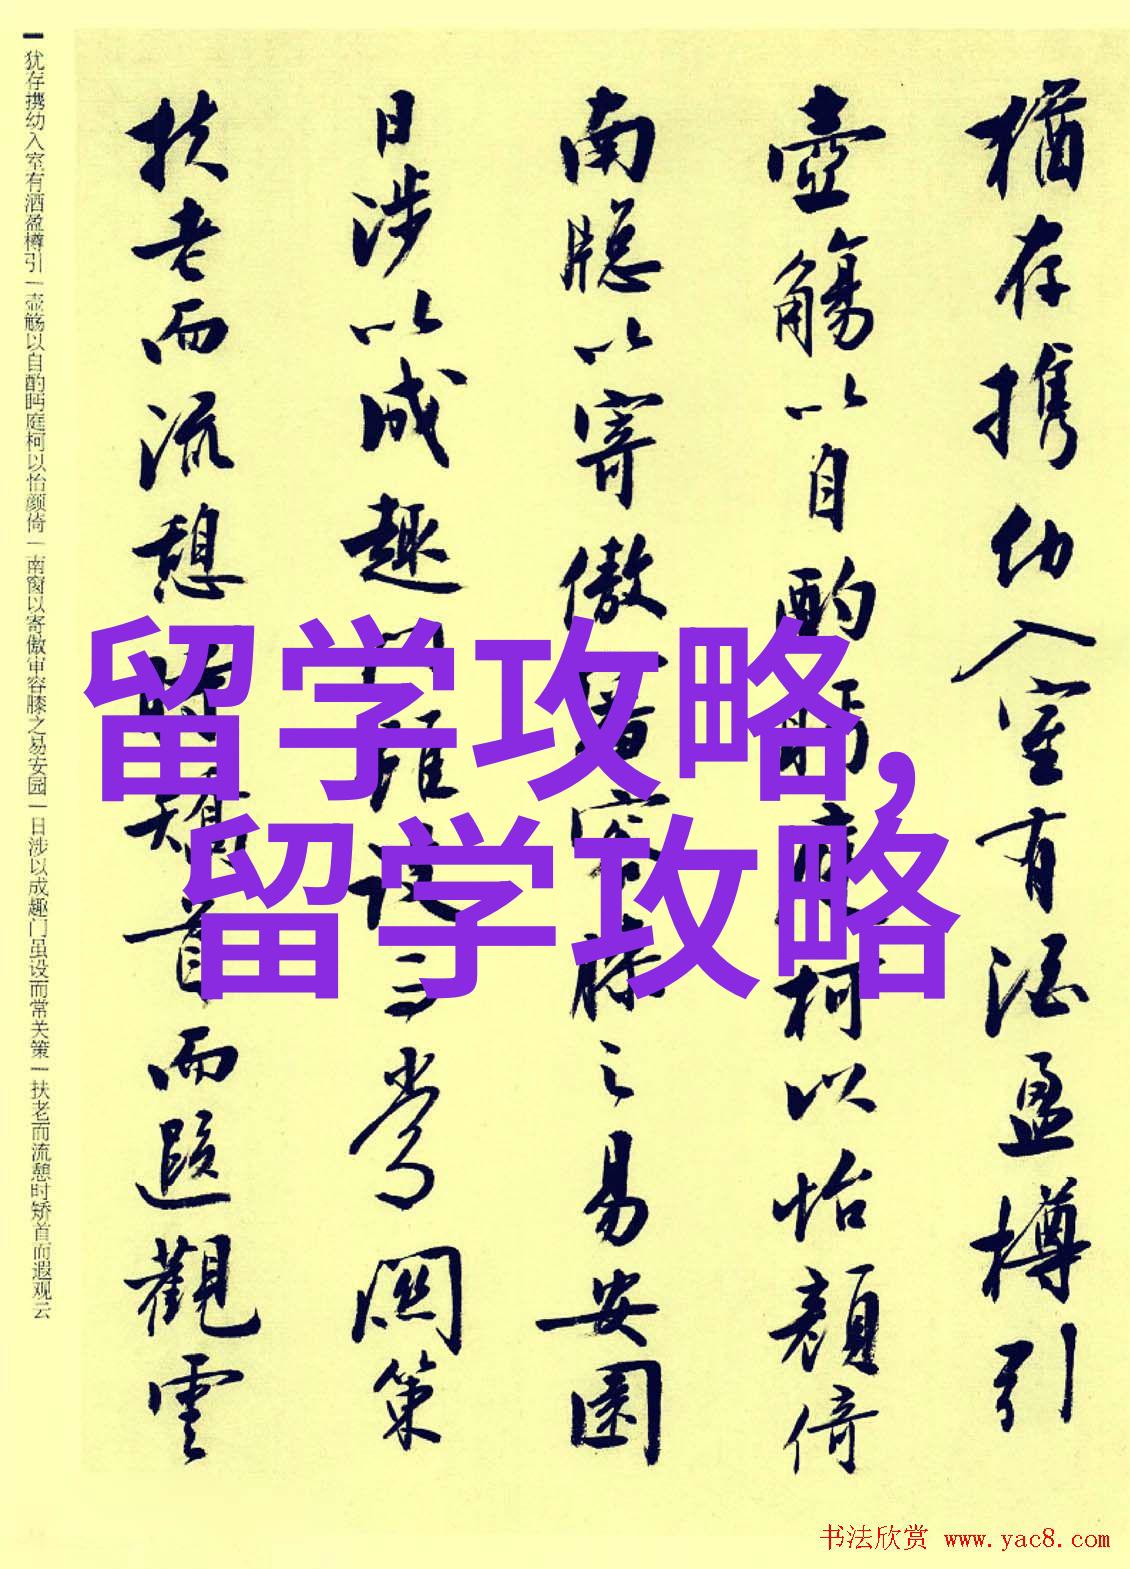 猶存携幼入室有酒盈樽引
壺觴以自酌眄庭柯以怡顔倚
南牕以寄傲審容膝之易安園
日涉以成趣門雖设而常関策
扶老而流憩時矯首而遐觀雲
留学攻略,
留学攻略
犹存携幼入室有酒盈樽引一壶觞以自酌眄庭柯以怡颜倚一南窗以寄傲审容膝之易安园一日涉以成趣门虽设而常关策一扶老而流憩时矫首而遐观云
书法欣赏 www.yac8.com